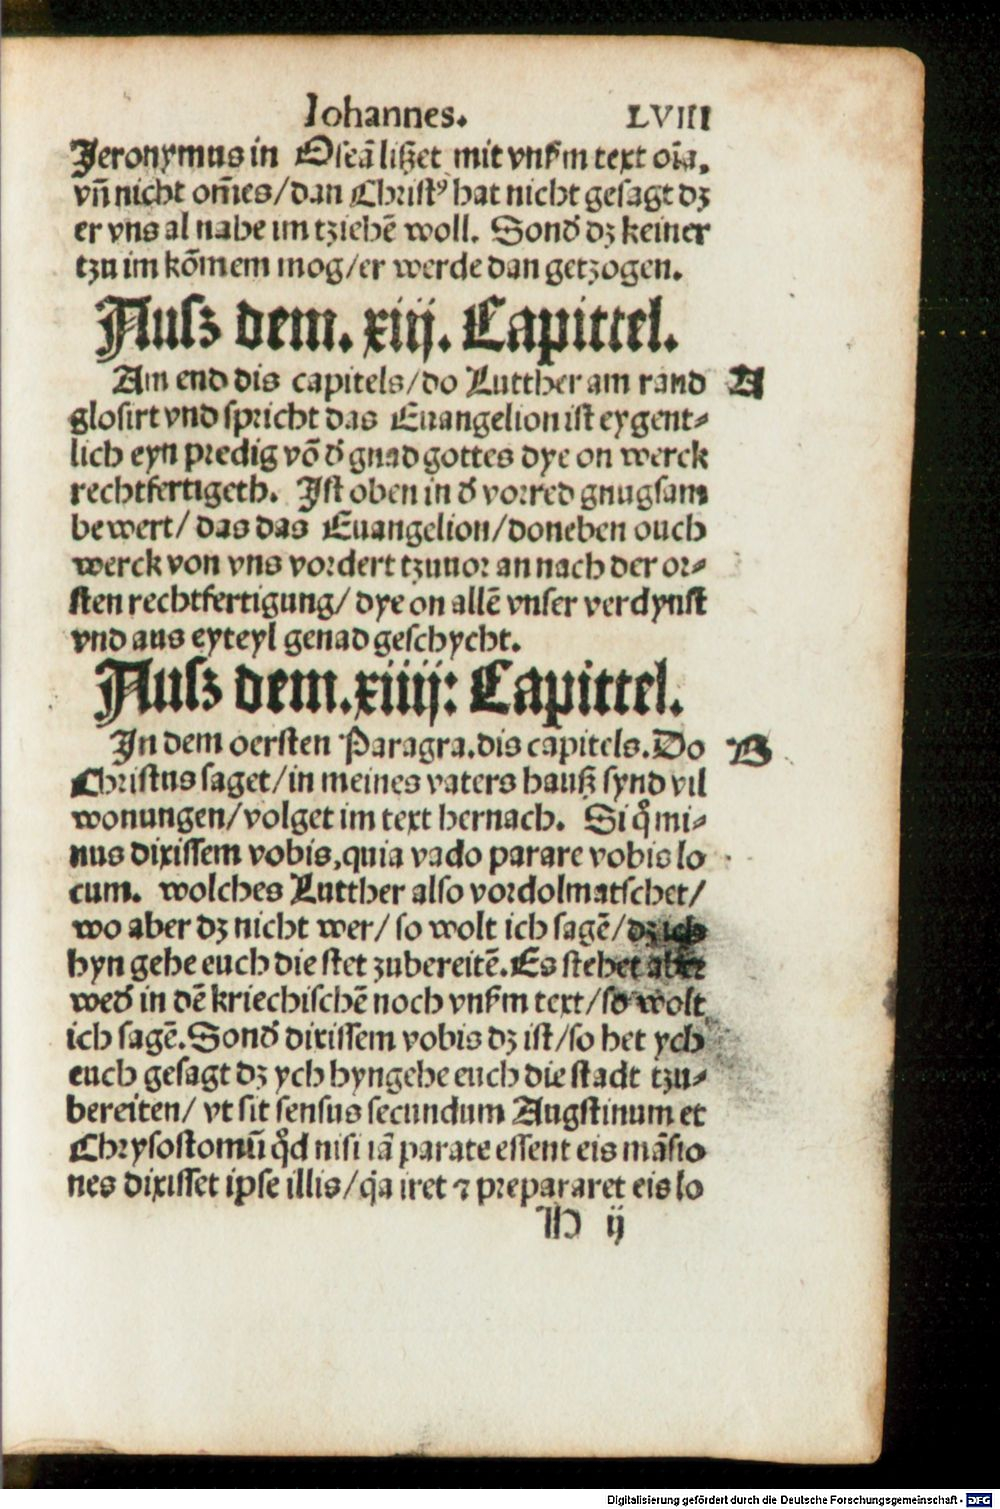 Iohannes. LVIII
Jeronymus in Oseã liszet mit vnserm text oĩa.
vñ nicht om̃es/dan Christꝰ hat nicht gesagt dz
er vns al nahe im tziehẽ woll. Sonď dz keiner
tzu im kõmem mog/er werde dan getzogen.
Ausz dem. xiij. Capittel.
Am end dis capitels/do Lutther am rand A
glosirt vnd spricht das Euangelion ist eygent⸗
lich eyn predig võ ď gnad gottes dye on werck
rechtfertigeth. Ist oben in ď vorred gnugsam
bewert/ das das Euangelion/doneben ouch
werck von vns vordert tzuuor an nach der or⸗
sten rechtfertigung/ dye on allẽ vnser verdynst
vnd aus eyteyl genad geschycht.
Ausz dem.xiiij: Capittel.
In dem oersten Paragra.dis capitels.Do B
Christus saget/in meines vaters hausz synd vil
wonungen/volget im text hernach. Si qͦ mi⸗
nus dixissem vobis,quia vado parare vobis lo
cum. wolches Lutther also vordolmatschet/
wo aber dz nicht wer/ so wolt ich sagẽ/dz ich
hyn gehe euch die stet zubereitẽ.Es stehet aber
weď in dẽ kriechischẽ noch vnserm text/so wolt
ich sagẽ.Sonď dixissem vobis dz ist/so het ych
euch gesagt dz ych hyngehe euch die stadt tzu⸗
bereiten/ vt sit sensus secundum Augstinum et
Chrysostomũ qͦd nisi iã parate essent eis mãsio
nes dixisset ipse illis/q̃a iret ⁊ prepararet eis lo
H ij
Digitalisierung gefördert durch die Deutsche Forschungsgemeinschaft - DFG